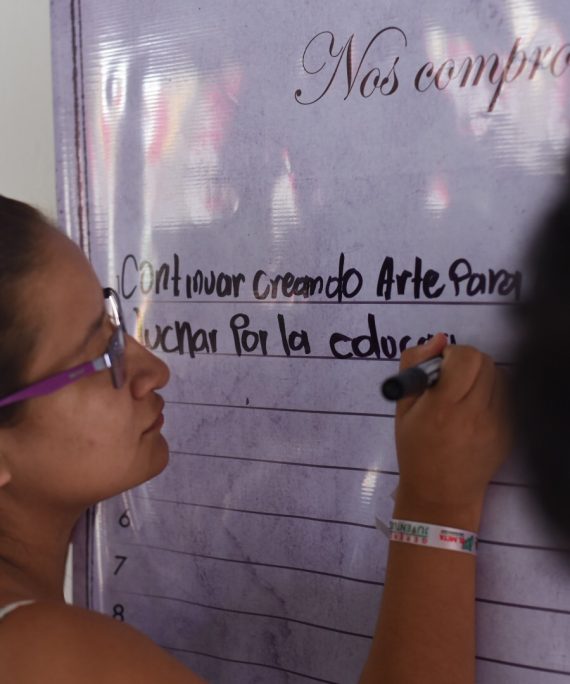 Nos compro
Continuar creando Arte Para
luchar Por la educa
6
7
8